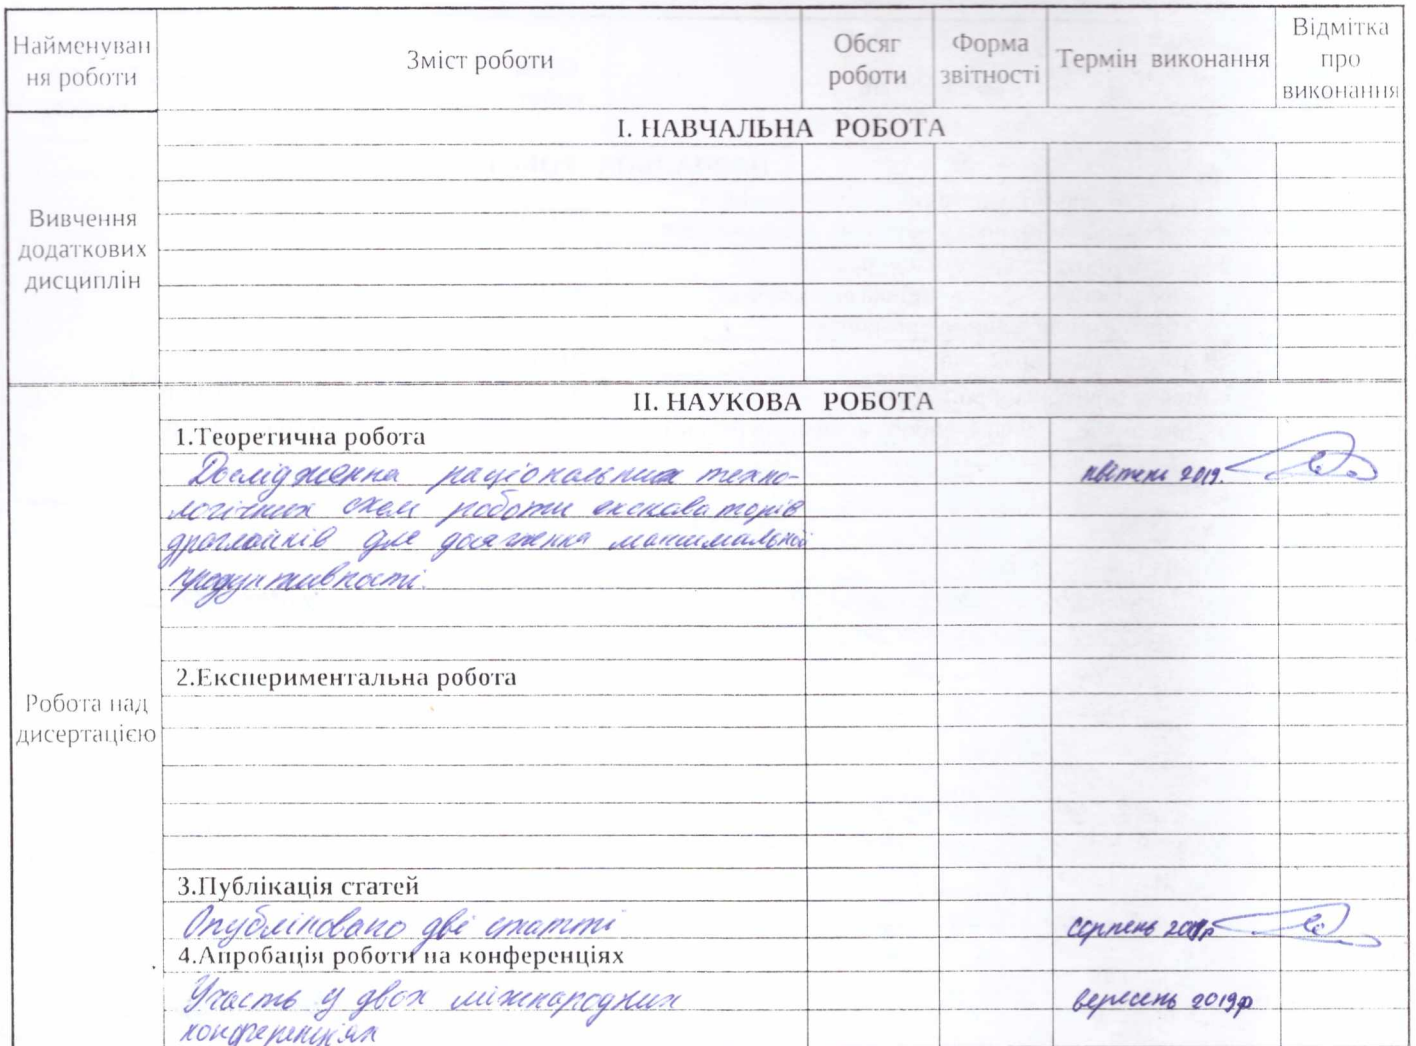 Найменуван
ня роботи
Зміст роботи
Обсяг
роботи
Форма
звітності
Термін виконання
Відмітка
про
виконання
І. НАВЧАЛЬНА РОБОТА
Вивчення
додаткових
дисциплін
ІІ. НАУКОВА РОБОТА
Робота над
дисертацією
1.Теоретична робота
Дослідження раціональних техно-
логічних схем роботи екскаваторів
драглайнів для досягнення максимальної
продуктивності.
квітень 2019.
2.Експериментальна робота
3.Публікація статей
Опубліковано дві статті
серпень 2019р
4.Апробація роботи на конференціях
Участь у двох міжнародних
конференціях
вересень 2019р